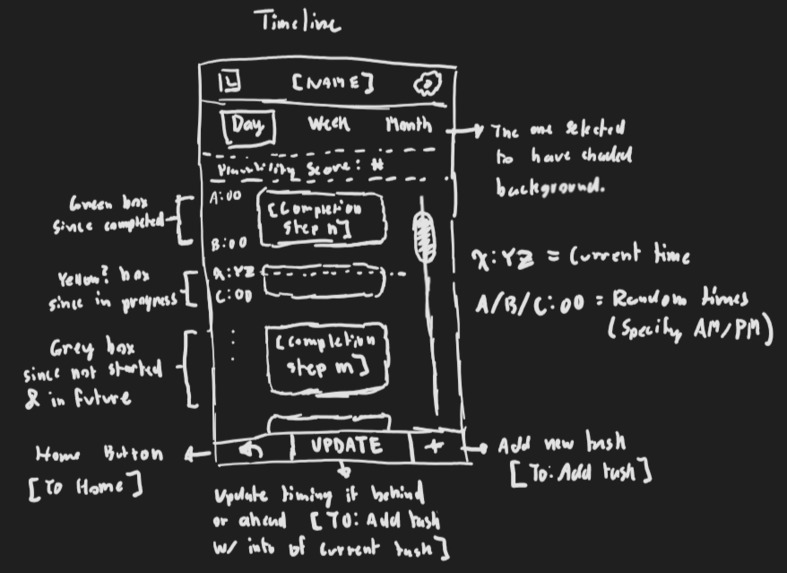 Timeline
[NAME]
Day Week Month
The one selected
to have shaded
background.
Plausibility Score: #
Green box
since completed
A:00
[Completion
step n]
B:00
Yellow? box
since in progress
X:YZ
C:00
X:YZ = Current time
A/B/C:00 = Random times
(Specify AM/PM)
Grey box
since not started
& in future
[Completion
step m]
Home Button
[To Home]
UPDATE
+
Add new task
[To: Add task]
Update timing if behind
or ahead [TO: Add task
w/ info of current task]